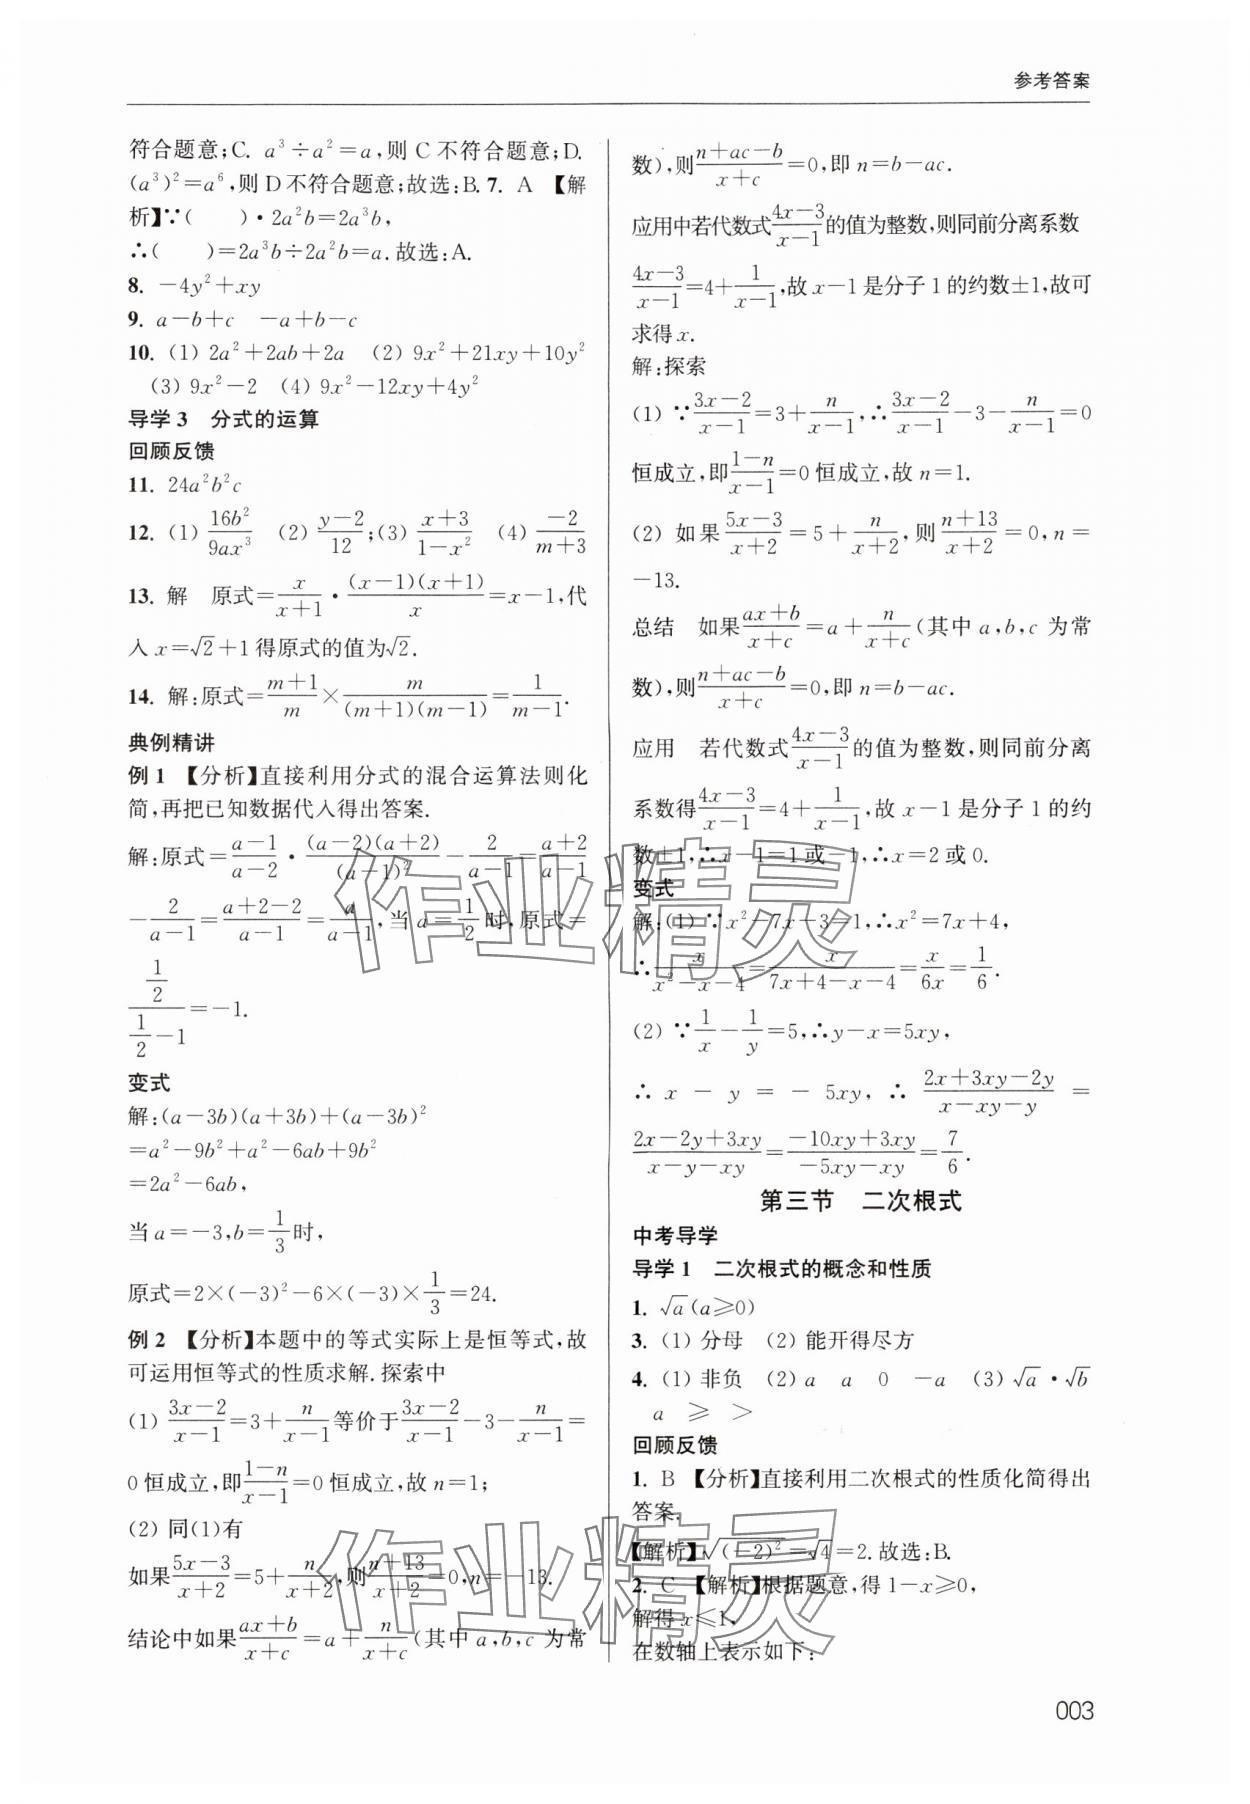 参考答案
符合题意;C. a³÷a²=a,则 C 不符合题意;D.
(a³)²=a⁶,则 D 不符合题意;故选:B. 7. A 【解
析】∵(  )·2a²b=2a³b,
∴(  )=2a³b÷2a²b=a.故选:A.
8. -4y²+xy
9. a-b+c -a+b-c
10. (1) 2a²+2ab+2a (2) 9x²+21xy+10y²
(3) 9x²-2 (4) 9x²-12xy+4y²
导学 3 分式的运算
回顾反馈
11. 24a²b²c
12. (1) 16b²/9ax³ (2) (y-2)/12;(3) (x+3)/(1-x²) (4) -2/(m+3)
13. 解 原式=x/(x+1)·(x-1)(x+1)/x=x-1,代
入 x=√2+1 得原式的值为√2.
14. 解:原式=(m+1)/m×m/((m+1)(m-1))=1/(m-1).
典例精讲
例 1 【分析】直接利用分式的混合运算法则化
简,再把已知数据代入得出答案.
解:原式=(a-1)/(a-2)·(a-2)(a+2)/(a-1)²-2/(a-1)=(a+2)/(a-1)
-2/(a-1)=(a+2-2)/(a-1)=a/(a-1),当 a=1/2时,原式=
(1/2)/(1/2-1)=-1.
变式
解:(a-3b)(a+3b)+(a-3b)²
=a²-9b²+a²-6ab+9b²
=2a²-6ab,
当 a=-3,b=1/3时,
原式=2×(-3)²-6×(-3)×1/3=24.
例 2 【分析】本题中的等式实际上是恒等式,故
可运用恒等式的性质求解.探索中
(1) (3x-2)/(x-1)=3+n/(x-1)等价于(3x-2)/(x-1)-3-n/(x-1)=
0 恒成立,即(1-n)/(x-1)=0 恒成立,故 n=1;
(2) 同(1)有
如果(5x-3)/(x+2)=5+n/(x+2),则(n+13)/(x+2)=0,n=-13.
结论中如果(ax+b)/(x+c)=a+n/(x+c)(其中 a,b,c 为常
数),则(n+ac-b)/(x+c)=0,即 n=b-ac.
应用中若代数式(4x-3)/(x-1)的值为整数,则同前分离系数
(4x-3)/(x-1)=4+1/(x-1),故 x-1 是分子 1 的约数±1,故可
求得 x.
解:探索
(1) ∵(3x-2)/(x-1)=3+n/(x-1),∴(3x-2)/(x-1)-3-n/(x-1)=0
恒成立,即(1-n)/(x-1)=0 恒成立,故 n=1.
(2) 如果(5x-3)/(x+2)=5+n/(x+2),则(n+13)/(x+2)=0,n=
-13.
总结 如果(ax+b)/(x+c)=a+n/(x+c)(其中 a,b,c 为常
数),则(n+ac-b)/(x+c)=0,即 n=b-ac.
应用 若代数式(4x-3)/(x-1)的值为整数,则同前分离
系数得(4x-3)/(x-1)=4+1/(x-1),故 x-1 是分子 1 的约
数±1,∴x-1=1 或-1,∴x=2 或 0.
变式
解:(1) ∵x²-7x-3=1,∴x²=7x+4,
∴x/(x²-x-4)=x/(7x+4-x-4)=x/6x=1/6.
(2) ∵1/x-1/y=5,∴y-x=5xy,
∴x-y=-5xy,∴(2x+3xy-2y)/(x-xy-y)=
(2x-2y+3xy)/(x-y-xy)=(-10xy+3xy)/(-5xy-xy)=7/6.
第三节 二次根式
中考导学
导学 1 二次根式的概念和性质
1. √a(a≥0)
3. (1) 分母 (2) 能开得尽方
4. (1) 非负 (2) a a 0 -a (3) √a·√b
a ≥ >
回顾反馈
1. B 【分析】直接利用二次根式的性质化简得出
答案.
【解析】√(-2)²=√4=2.故选:B.
2. C 【解析】根据题意,得 1-x≥0,
解得 x≤1,
在数轴上表示如下:
003
作业精灵
作业精灵